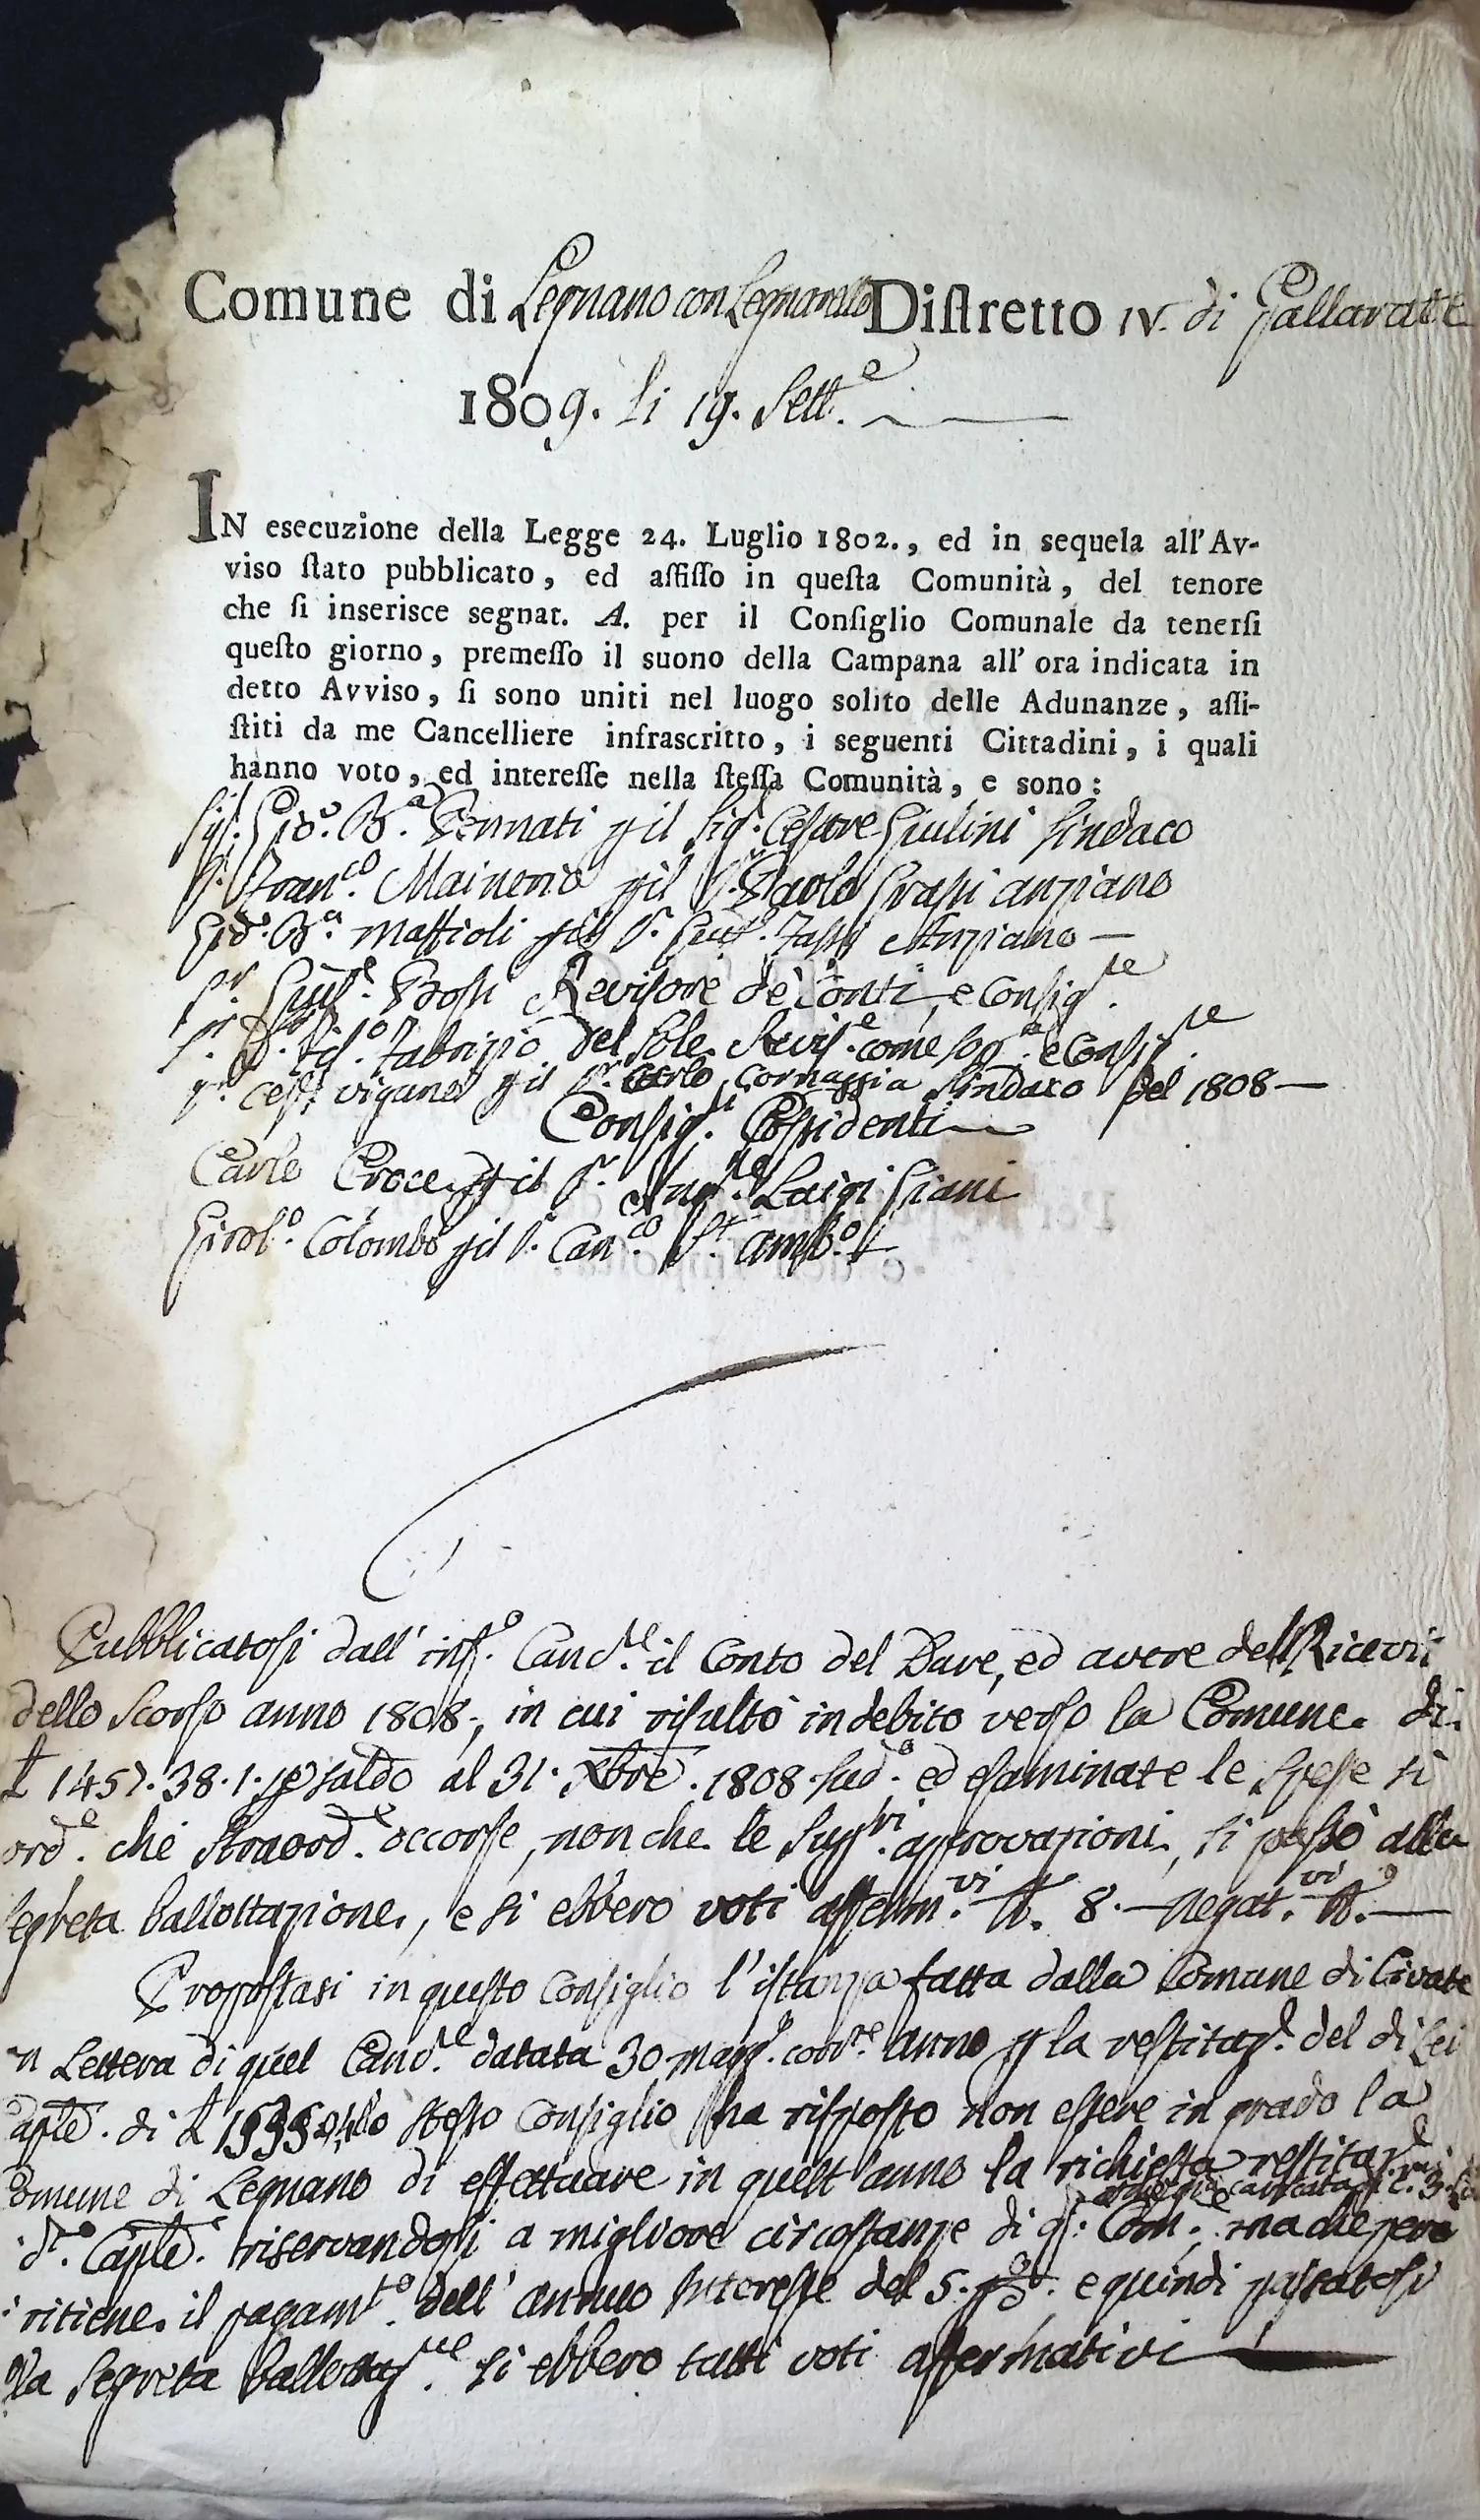 Comune di Legnano con Legnarello Diſtretto IV. di Gallarate
1809. li 19. Sett.e
IN esecuzione della Legge 24. Luglio 1802., ed in sequela all'Av-
viso ſtato pubblicato, ed affiſſo in queſta Comunità, del tenore
che ſi inserisce segnat. A. per il Conſiglio Comunale da tenerſi
queſto giorno, premeſſo il suono della Campana all' ora indicata in
detto Avviso, ſi sono uniti nel luogo solito delle Adunanze, aſſi-
ſtiti da me Cancelliere infrascritto, i seguenti Cittadini, i quali
hanno voto, ed intereſſe nella ſteſſa Comunità, e sono:
Sig.r Gio. B.a Pennati p il Sig.r Cesare Giulini Sindaco
S.r Fran.co Mainerio p il S.r Paolo Crassi anziano
Gio. B.a Maffioli p il S.r Anziano —
S.r Gius.e Bossi Revisore de Conti, e Consig.re
S.r Fabrizio Del Sole Revis.e come sop.a e Consig.re
S.r Ces.e Viganò p il S.r Carlo Cornaggia Sindaco del 1808 —
Consig.ri Possidenti
Carlo Croce p il S.r Luigi Giani
Girol.o Colombo p il S.r Can.co S.t Amb.o
Pubblicatosi dall' inf.o Canc.re il Conto del Dare, ed avere del Ricevit
dello Scorso anno 1808., in cui risultò in debito verso la Comune di
£ 1457.38.1. p saldo al 31. Xbre. 1808. sud.o ed esaminate le Spese sì
ord.e che Straord.e occorse, non che le Sup.ri approvazioni, si passò alla
segreta ballottazione, e si ebbero voti afferm.vi N. 8. — Negat.vi N.o —
Propostasi in questo Consiglio l'istanza fatta dalla Comune di Civate
in Lettera di quel Canc.re datata 30 magg.o corr.e anno p la restituz.e del di Lei
aple. di £ lo stesso Consiglio ha risposto non essere in grado la
Comune di Legnano di effettuare in quest'anno la richiesta restituz.e
d.o Caple. riservandosi a migliore circostanze di q.a Com.e, ma che però
ritiene il pagam.to dell' annuo Interesse del 5. p e quindi passatosi
lla Segreta ballottaz.ne si ebbero tutti voti affermativi